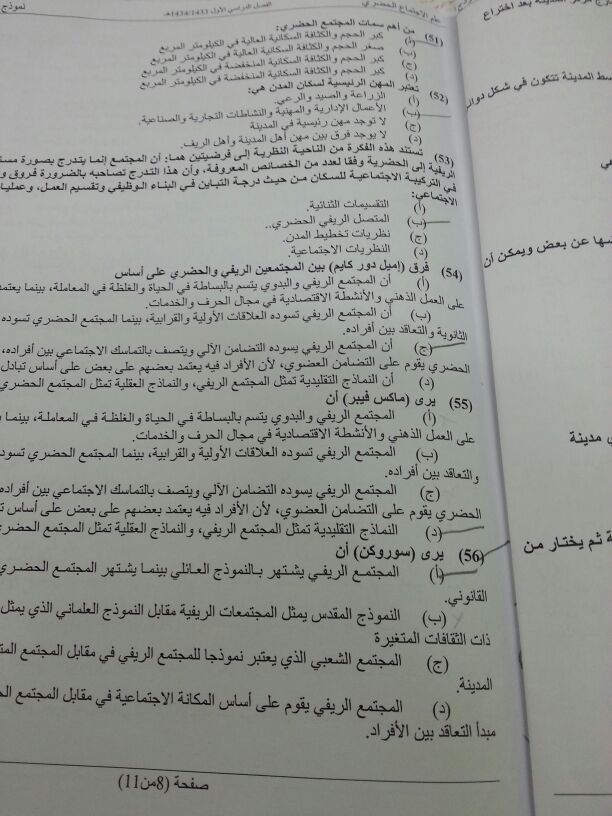 علم الاجتماع الحضري
الفصل الدراسي الأول 1434/1433هـ
نموذج
(51) من أهم سمات المجتمع الحضري:
(أ) كبر الحجم والكثافة السكانية العالية في الكيلومتر المربع
(ب) صغر الحجم والكثافة السكانية العالية في الكيلومتر المربع
(ج) كبر الحجم والكثافة السكانية المنخفضة في الكيلومتر المربع
(د) كبر الحجم والكثافة السكانية المنخفضة في الكيلومتر المربع
(52) تعتبر المهن الرئيسية لسكان المدن هي:
(أ) الزراعة والصيد والرعي.
(ب) الأعمال الإدارية والمهنية والنشاطات التجارية والصناعية.
(ج) لا توجد مهن رئيسية في المدينة
(د) لا يوجد فرق بين مهن أهل المدينة وأهل الريف.
(53) تستند هذه الفكرة من الناحية النظرية إلى فرضيتين هما: أن المجتمع إنما يتدرج بصورة
الريفية إلى الحضرية وفقا لعدد من الخصائص المعروفة، وأن هذا التدرج تصاحبه بالضرورة فروق
في التركيبة الاجتماعية للسكان من حيث درجة التباين في البناء الوظيفي وتقسيم العمل،
الاجتماعي:
(أ) التقسيمات الثنائية.
(ب) المتصل الريفي الحضري..
(ج) نظريات تخطيط المدن.
(د) النظريات الاجتماعية.
(54) فرق (إميل دور كايم) بين المجتمعين الريفي والحضري على أساس
(أ) أن المجتمع الريفي والبدوي يتسم بالبساطة في الحياة والغلظة في المعاملة، بينما يعتمد
على العمل الذهني والأنشطة الاقتصادية في مجال الحرف والخدمات.
(ب) أن المجتمع الريفي تسوده العلاقات الأولية والقرابية، بينما المجتمع الحضري تسوده
الثانوية والتعاقد بين أفراده.
(ج) أن المجتمع الريفي يسوده التضامن الآلي ويتصف بالتماسك الاجتماعي بين أفراده،
الحضري يقوم على التضامن العضوي، لأن الأفراد فيه يعتمد بعضهم على بعض على أساس تبادل
(د) أن النماذج التقليدية تمثل المجتمع الريفي، والنماذج العقلية تمثل المجتمع الحضري
(55) يرى (ماكس فيبر) أن
(أ) المجتمع الريفي والبدوي يتسم بالبساطة في الحياة والغلظة في المعاملة، بينما
على العمل الذهني والأنشطة الاقتصادية في مجال الحرف والخدمات.
(ب) المجتمع الريفي تسوده العلاقات الأولية والقرابية، بينما المجتمع الحضري
والتعاقد بين أفراده.
(ج) المجتمع الريفي يسوده التضامن الآلي ويتصف بالتماسك الاجتماعي بين أفراده
الحضري يقوم على التضامن العضوي، لأن الأفراد فيه يعتمد بعضهم على بعض على أساس
(د) النماذج التقليدية تمثل المجتمع الريفي، والنماذج العقلية تمثل المجتمع
(56) يرى (سوروكن) أن
(أ) المجتمع الريفي يشتهر بالنموذج العائلي بينما يشتهر المجتمع الحضري
القانوني.
(ب) النموذج المقدس يمثل المجتمعات الريفية مقابل النموذج العلماني الذي يمثل
ذات الثقافات المتغيرة
(ج) المجتمع الشعبي الذي يعتبر نموذجا للمجتمع الريفي في مقابل المجتمع
المدينة.
(د) المجتمع الريفي يقوم على أساس المكانة الاجتماعية في مقابل المجتمع
مبدأ التعاقد بين الأفراد.
صفحة (8من11)
المدينة بعد اختراع
المدينة تتكون في شكل
عن بعض ويمكن أن
مدينة
ثم يختار من